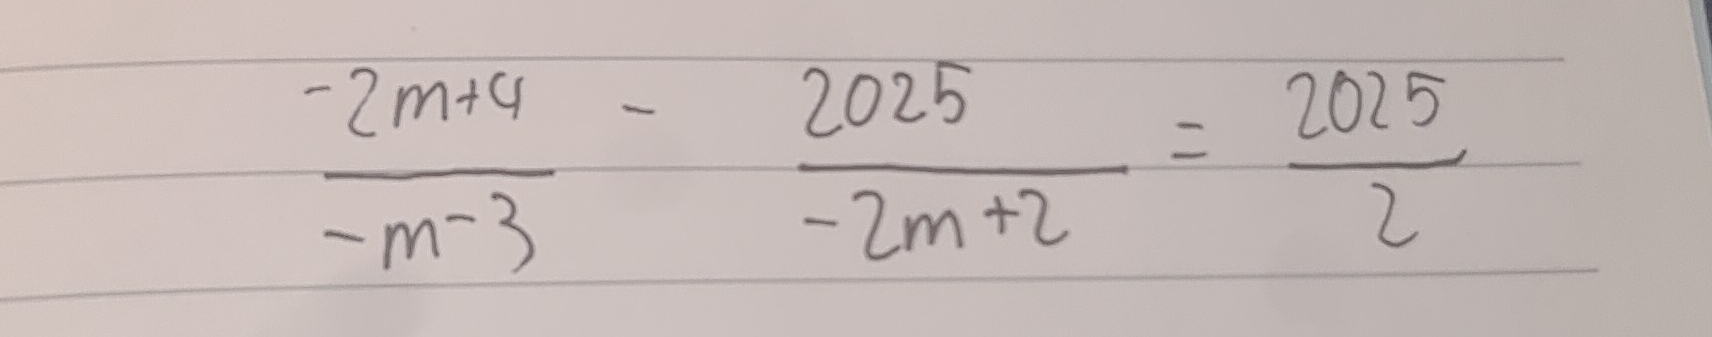 (-2m+4)/(-m-3) - 2025/(-2m+2) = 2025/2